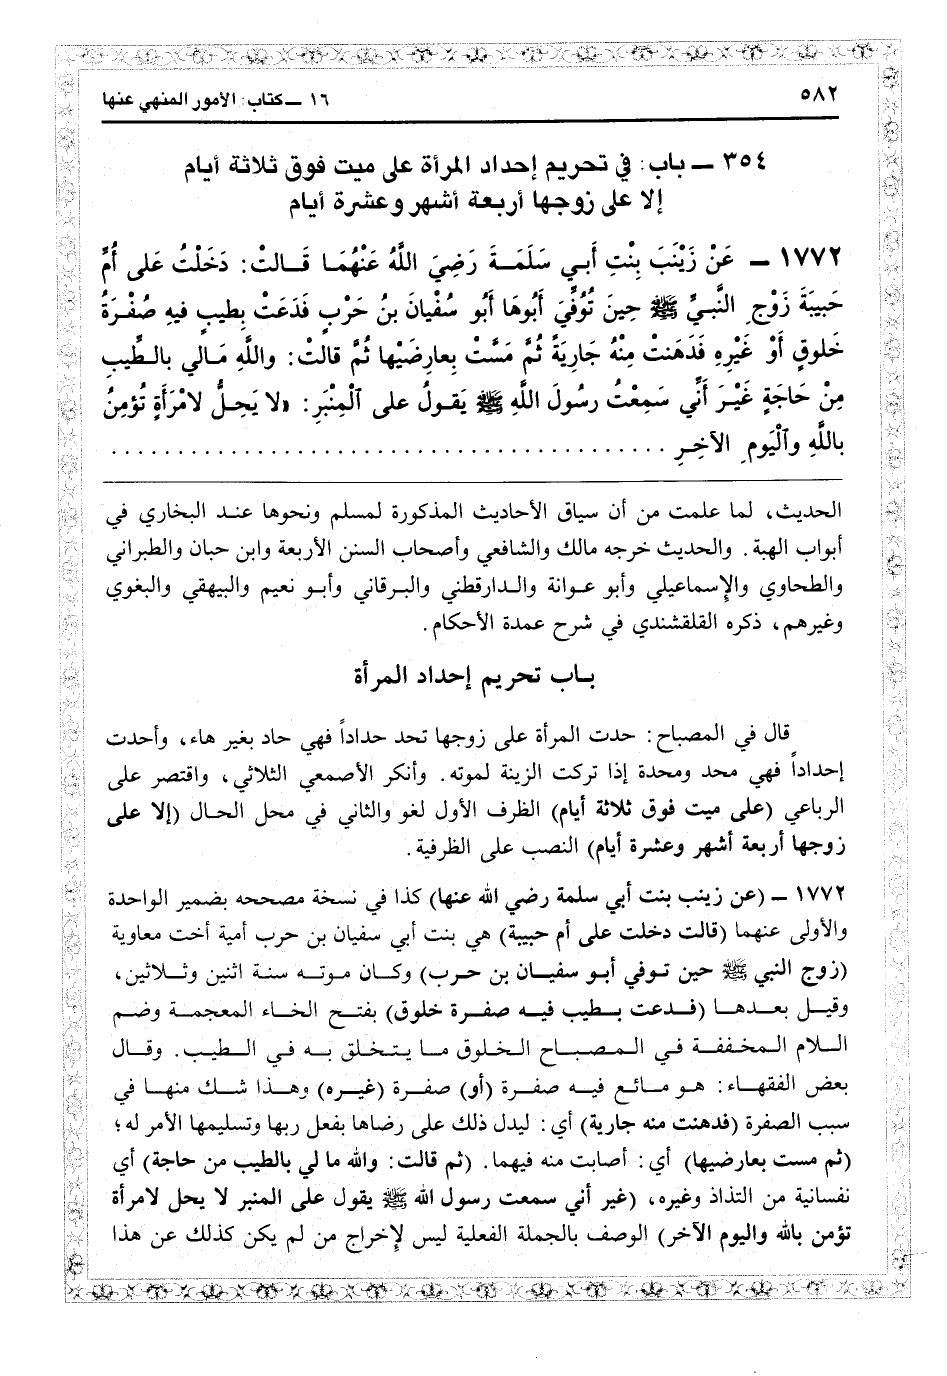 ٥٨٢ ١٦ ـ كتاب: الأمور المنهي عنها
٣٥٤ ـ باب: في تحريم إحداد المرأة على ميت فوق ثلاثة أيام
إلا على زوجها أربعة أشهر وعشرة أيام
١٧٧٢ ـ عَنْ زَيْنَبَ بِنْتِ أَبي سَلَمَـةَ رَضِيَ اللَّهُ عَنْهُمَـا قَـالتْ: دَخَلْتُ عَلى أُمِّ
حَبِيبَةَ زَوْجِ النَّبيِّ ﷺ حِينَ تُوُفِّيَ أَبُوهَا أَبُو سُفْيَانَ بنُ حَرْبٍ فَدَعَتْ بِطيبٍ فيهِ صُفْرَةُ
خَلوقٍ أَوْ غَيْرِهِ فَدَهَنتْ مِنْهُ جَارِيَةً ثُمَّ مَسَّتْ بِعارِضَيْها ثُمَّ قالتْ: واللَّهِ مَالي بالـطِّيبِ
مِنْ حَاجَةٍ غَيْـرَ أَنِّي سَمِعْتُ رسُولَ اللَّهِ ﷺ يَقولُ على ٱلْمِنْبَرِ: «لا يَحِـلُّ لامْرَأَةٍ تُؤمِنُ
باللَّهِ وٱلْيَومِ الآخِـرِ ........................................
الحديث، لما علمت من أن سياق الأحاديث المذكورة لمسلم ونحوها عنـد البخاري في
أبواب الهبة. والحديث خرجه مالك والشافعي وأصحاب السنن الأربعة وابن حبان والطبراني
والطحاوي والإسماعيلي وأبو عوانة والـدارقطني والبـرقاني وأبـو نعيم والبيهقي والبغوي
وغيرهم، ذكره القلقشندي في شرح عمدة الأحكام.
بـاب تحريم إحداد المرأة
قال في المصباح: حدت المرأة على زوجها تحد حداداً فهي حاد بغير هاء، وأحدت
إحداداً فهي محد ومحدة إذا تركت الزينة لموته. وأنكر الأصمعي الثلاثي، واقتصر على
الرباعي (على ميت فوق ثلاثة أيام) الظرف الأول لغو والثاني في محل الحال (إلا على
زوجها أربعة أشهر وعشرة أيام) النصب على الظرفية.
١٧٧٢ ـ (عن زينب بنت أبي سلمة رضي الله عنها) كذا في نسخة مصححه بضمير الواحدة
والأولى عنهما (قالت دخلت على أم حبيبة) هي بنت أبي سفيان بن حرب أمية أخت معاوية
(زوج النبي ﷺ حين تـوفي أبـو سفيـان بن حـرب) وكـان مـوتـه سنـة اثنين وثـلاثين،
وقيـل بعـدهـا (فـدعت بـطيب فيـه صفـرة خلوق) بفتـح الخـاء المعجمـة وضـم
الـلام المخـففـة فـي الـمصبـاح الـخلوق مـا يـتـخلق بـه فـي الـطيب. وقـال
بعض الفقهـاء: هـو مـائـع فيـه صفـرة (أو) صفـرة (غيـره) وهـذا شـك منهـا في
سبب الصفرة (فدهنت منه جارية) أي: ليدل ذلك على رضاها بفعل ربها وتسليمها الأمر له؛
(ثم مست بعارضيها) أي: أصابت منه فيهما. (ثم قالت: والله ما لي بالطيب من حاجة) أي
نفسانية من التذاذ وغيره، (غير أني سمعت رسول الله ﷺ يقول على المنبر لا يحل لامرأة
تؤمن بالله واليوم الآخر) الوصف بالجملة الفعلية ليس لإخراج من لم يكن كذلك عن هذا